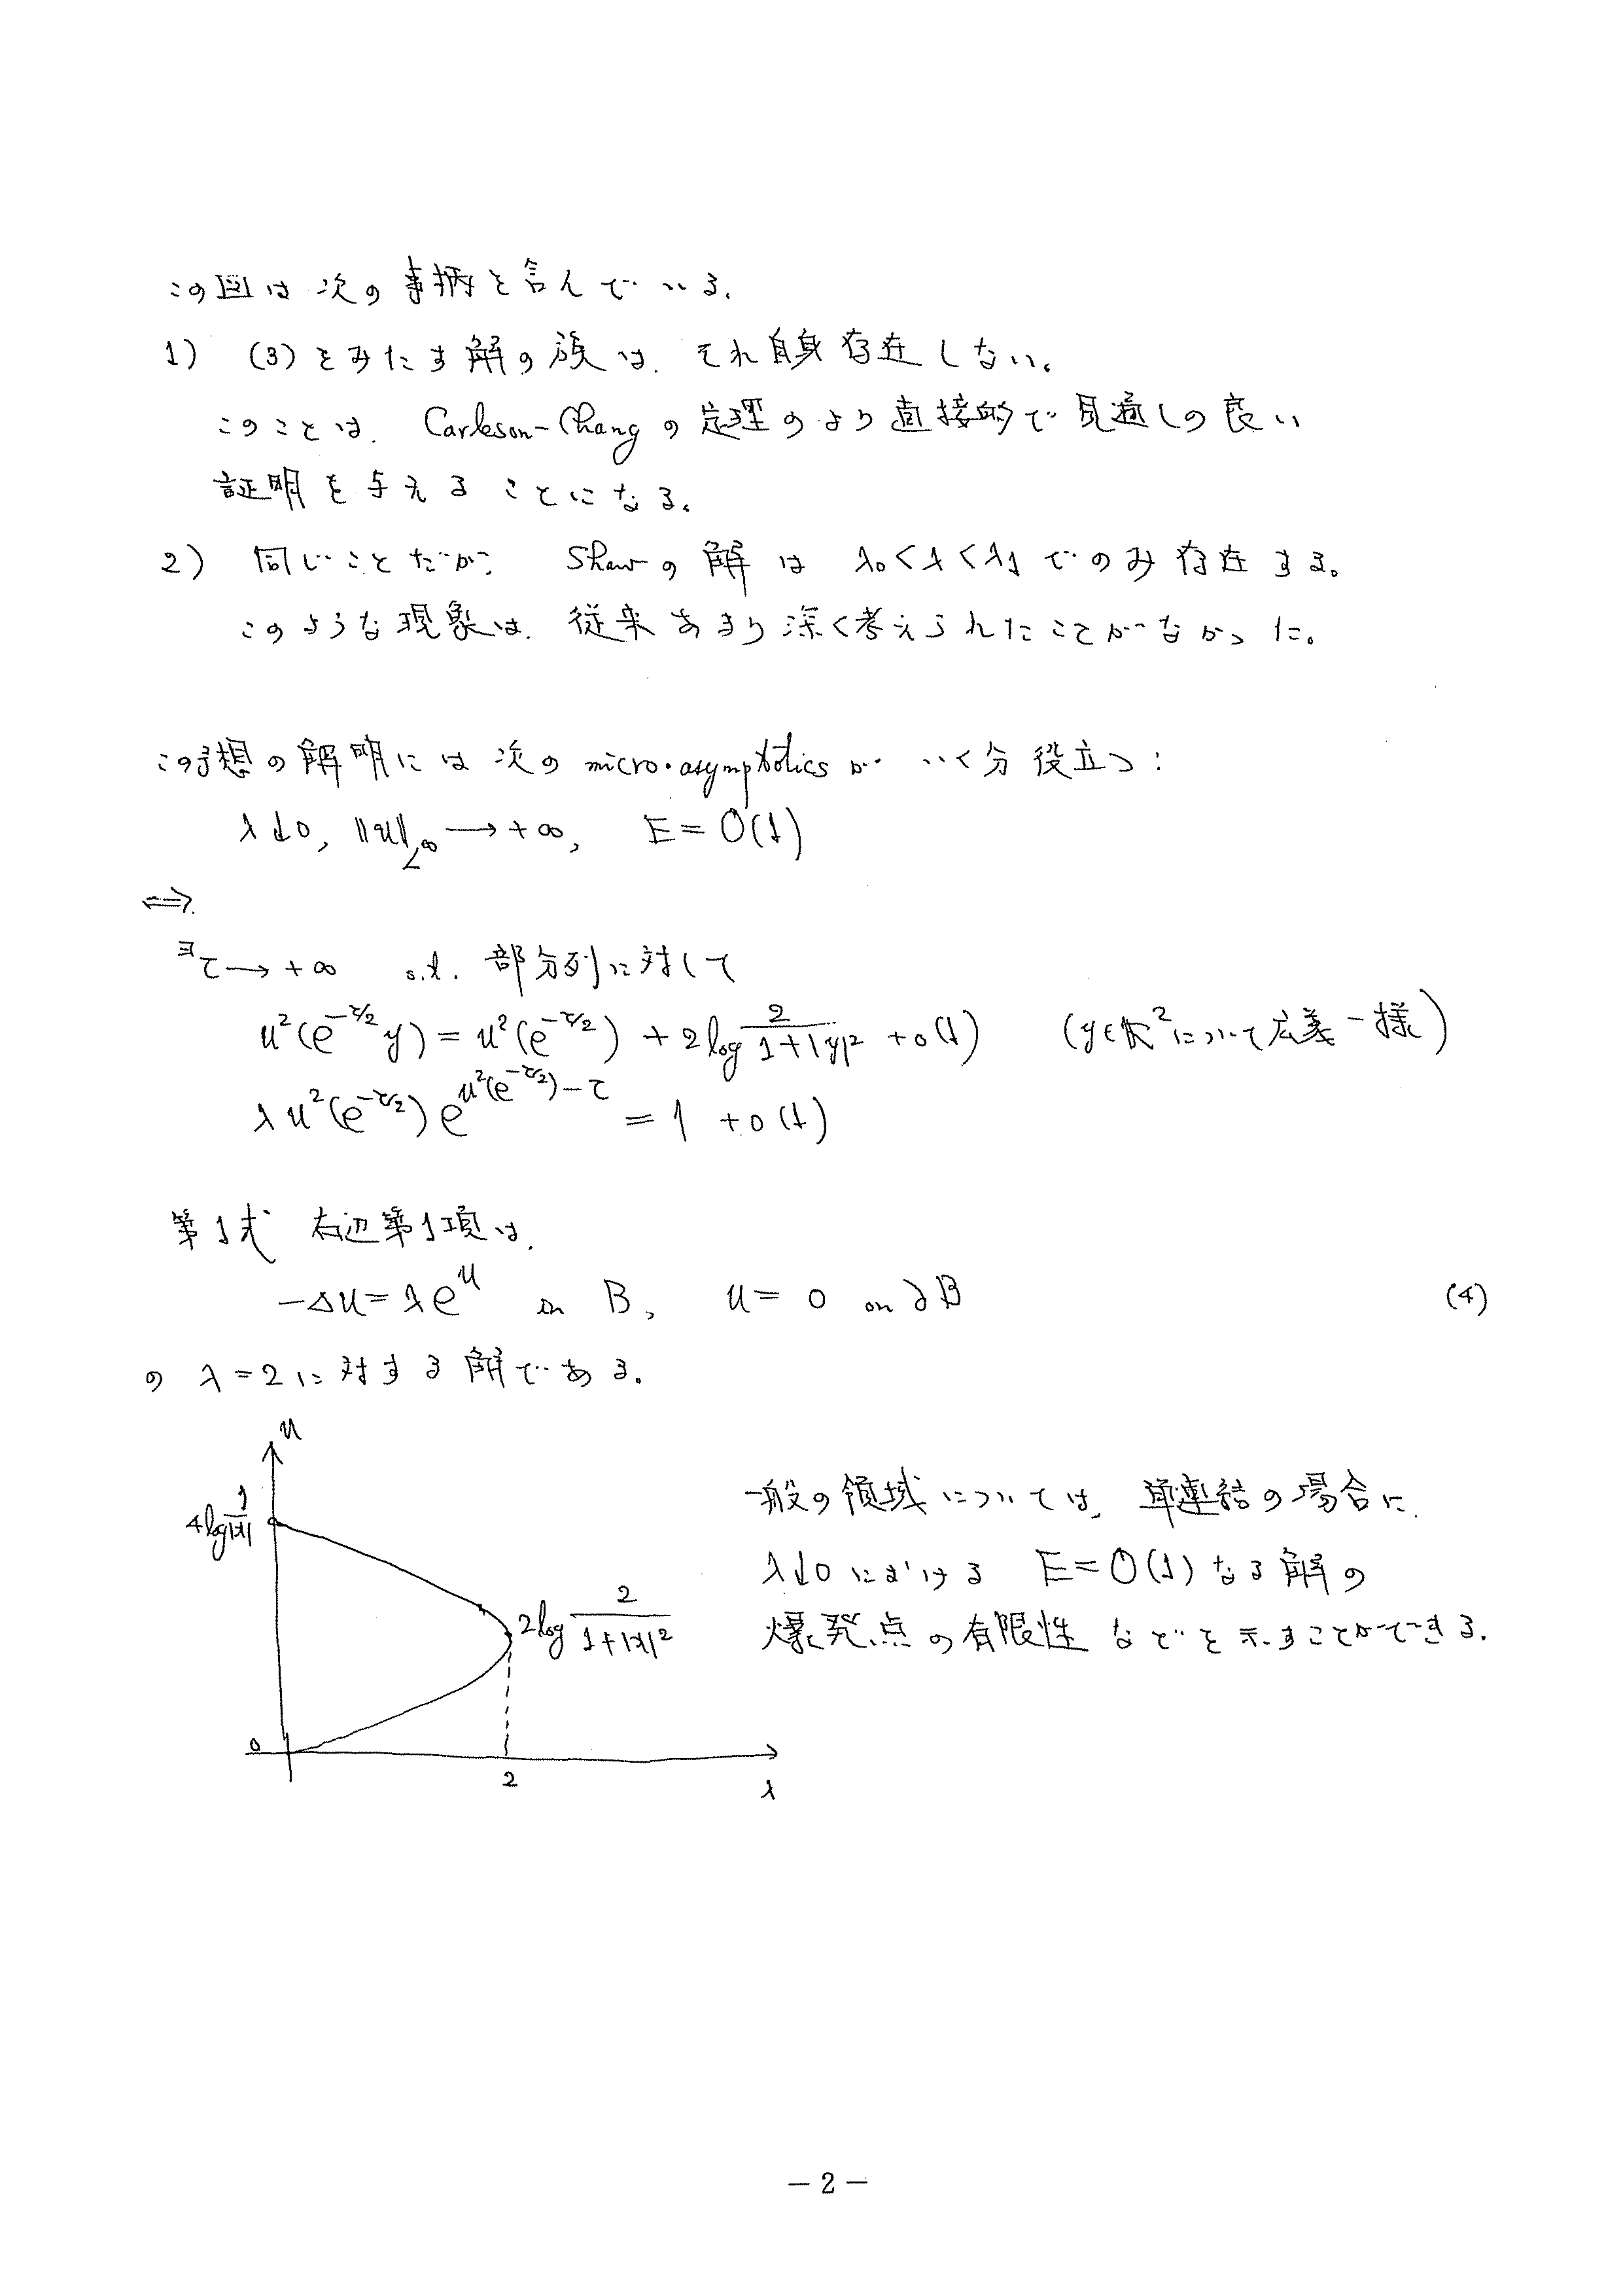 この図は次の事柄を言んでいる.
1) (3)をみたす解の族は, それ自身存在しない。
このことは, Carleson-Chang の定理のより直接的で見通しの良い
証明を与えることになる。
2) 同じことだが, Shaw の解は λ₀<λ<λ₁ でのみ存在する。
このような現象は, 従来あまり深く考えられたことがなかった。
この予想の解明には次の micro-asymptotics が いく分役立つ:
λ↓0, ‖u‖_{L^∞} → +∞, E = O(1)
⟺
∃τ → +∞ s.t. 部分列に対して
u²(e^{-τ/2}y) = u²(e^{-τ/2}) + 2log 2/(1+|y|²) + o(1) (y∈ℝ²について広義一様)
λu²(e^{-τ/2})e^{u²(e^{-τ/2})-τ} = 1 + o(1)
第1式 右辺第1項は,
-Δu = λe^u in B, u = 0 on ∂B (4)
の λ=2 に対する解である.
u
4log 1/|x|
2log 2/(1+|x|²)
0
2
λ
一般の領域については, 単連結の場合に,
λ↓0 における E = O(1) なる解の
爆発点の有限性などを示すことができる.
-2-